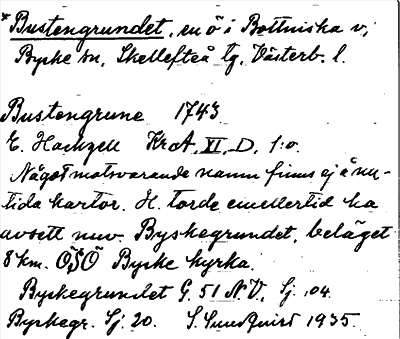 *Bustengrundet, en ö i Bottniska v,
Byske sn, Skellefteå tg, Västerb. l.
Bustengrune 1743
E. Hackzell KrA, XI, D, 1:o.
Något motsvarande namn finns ej å nu-
tida kartor. H. torde emellertid ha
avsett nuv. Byskegrundet, beläget
8 km. ÖSÖ Byske kyrka.
Byskegrundet G. 51 NV, Sj. 104
Byskegr. Sj. 20. S. Sundquist 1935.